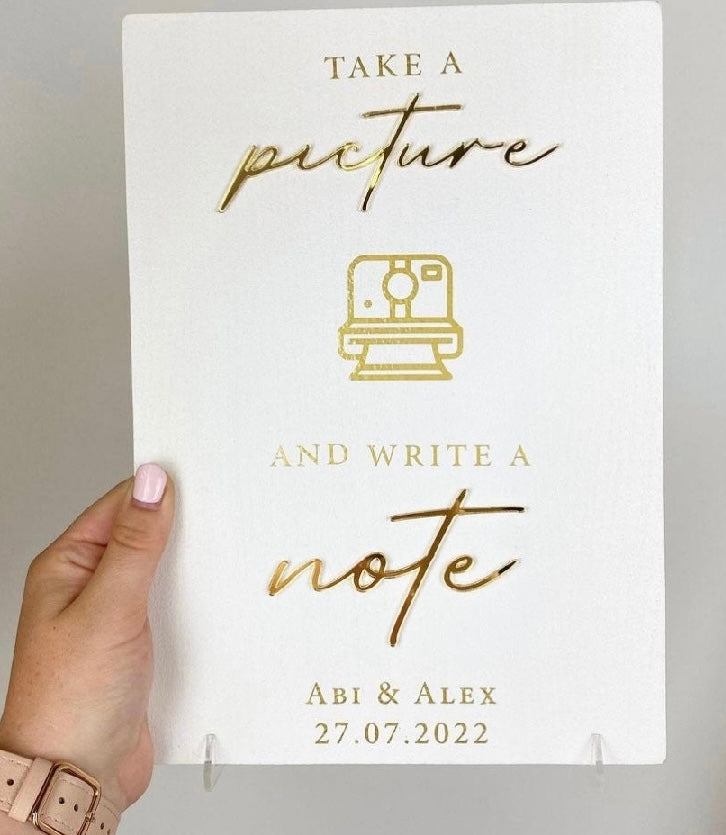 TAKE A
picture
AND WRITE A
note
ABI & ALEX
27.07.2022